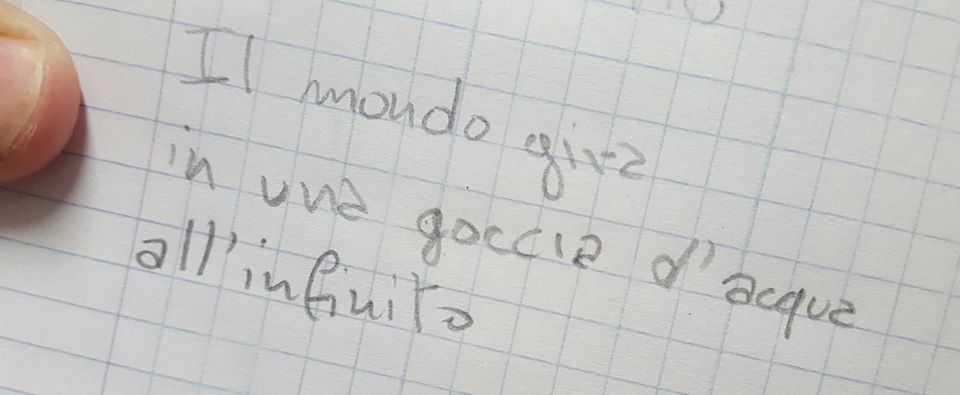 Il mondo gira
in una goccia d'acqua
all'infinito